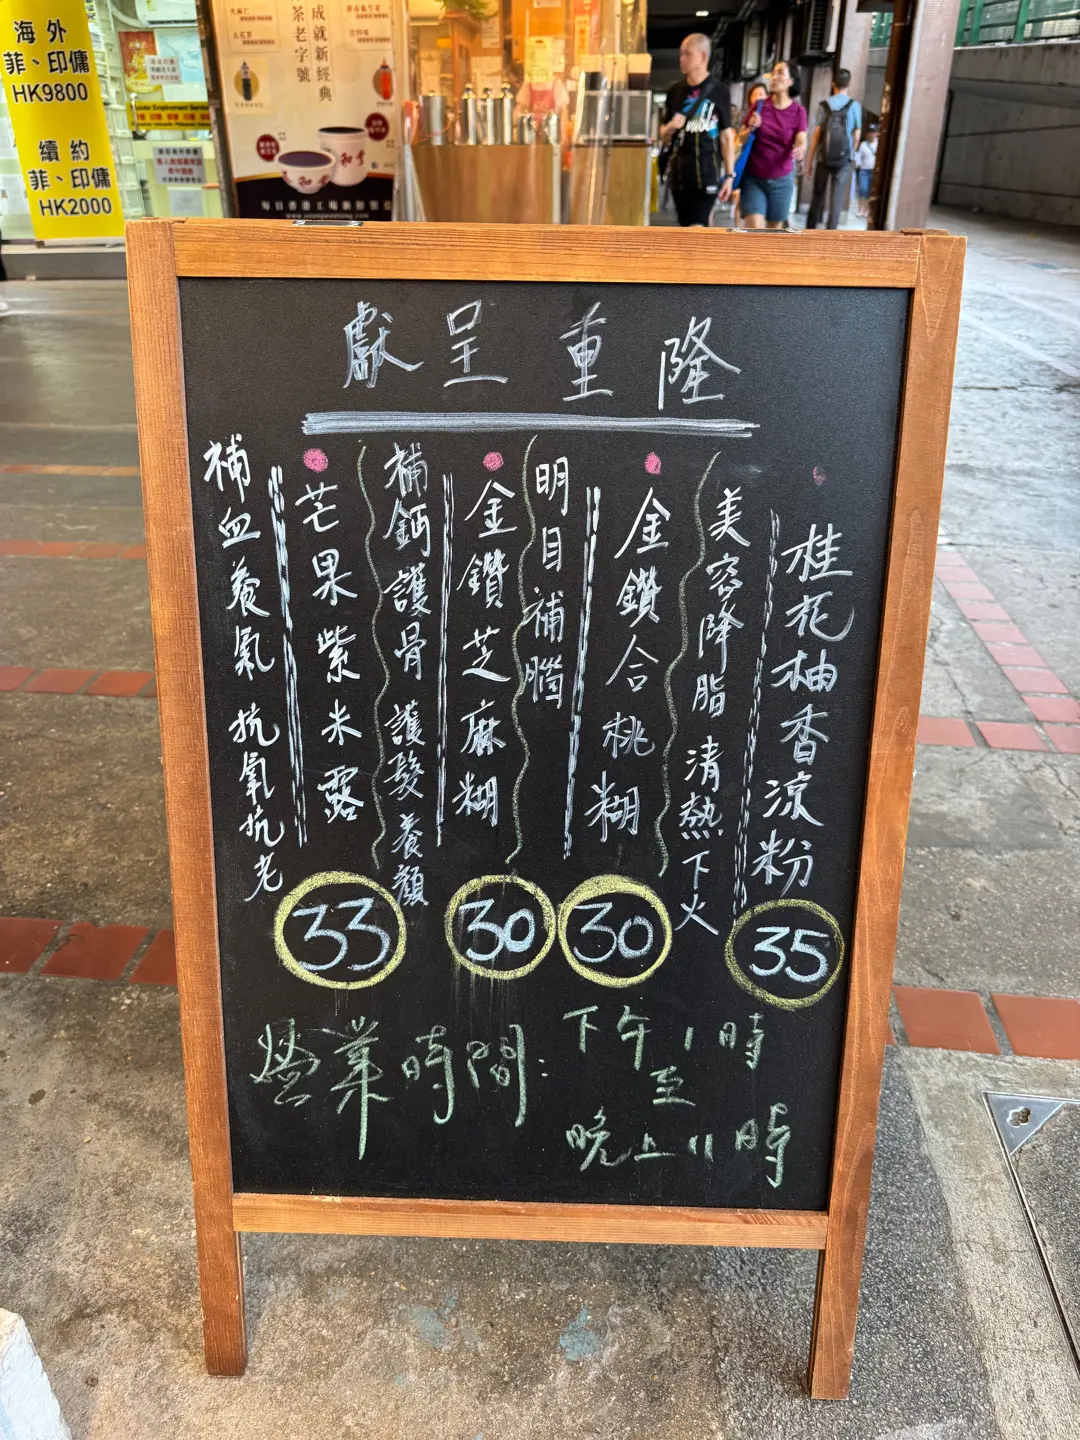 海外
菲、印傭
HK9800
續約
菲、印傭
HK2000
成就新經典
茶老字號
隆重呈獻
桂花柚香涼粉
美容降脂 清熱下火
35
金鑽合桃糊
明目補腦
30
金鑽芝麻糊
補鈣護骨 護髮養顏
30
芒果紫米露
補血養氣 抗氧抗老
33
營業時間:
下午1時
至
晚上11時